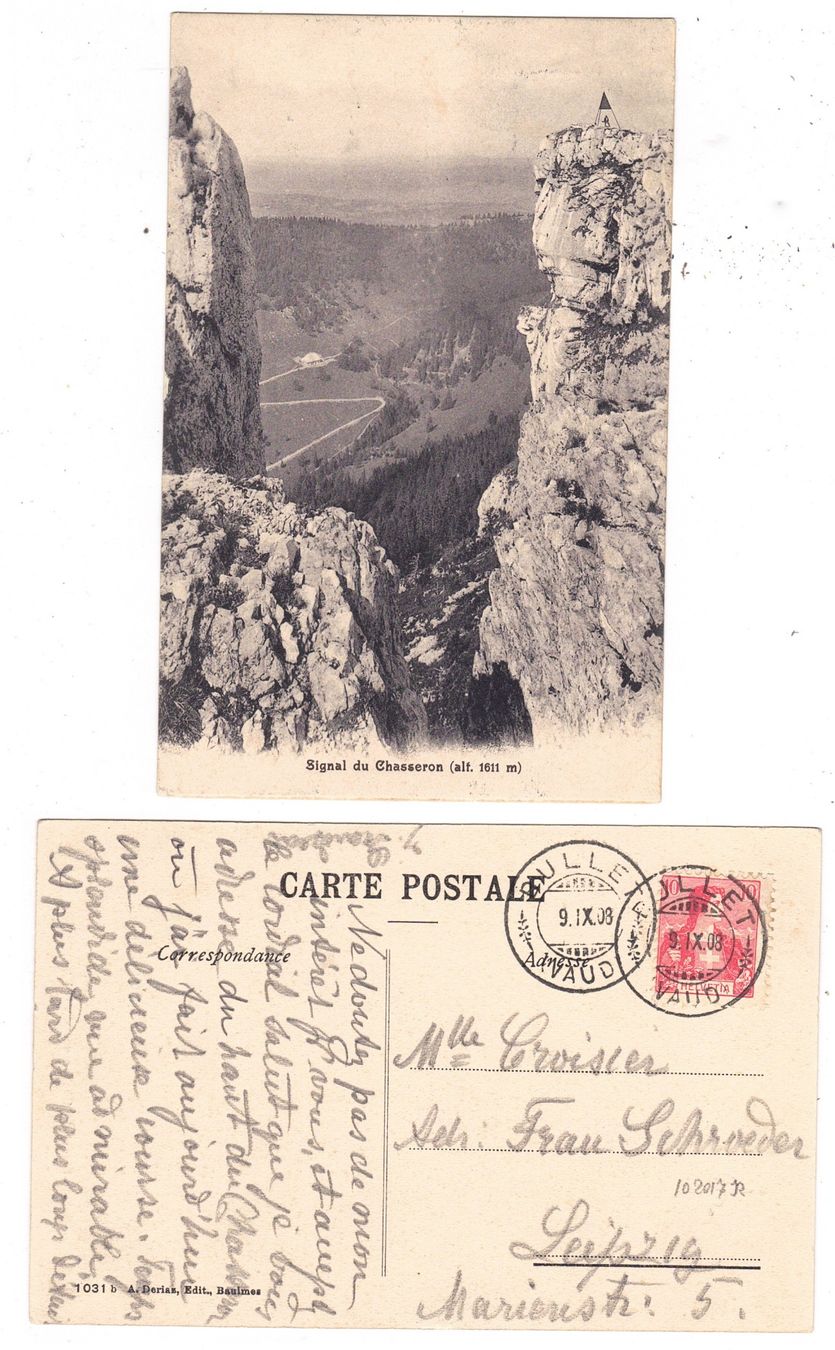 Signal du Chasseron (alt. 1611 m)
CARTE POSTALE
Correspondance
Adresse
BULLET
9.IX.08
VAUD
BULLET
9.IX.08
VAUD
10 10
HELVETIA
Ne doutez pas de mon
intérêt p. vous, et
le cordial salut que je vous
adresse du haut du
où j'ai fait aujourd'hui
une délicieuse course.
splendide, vue admirable,
A plus tard de plus longs
Mlle Croisier
Adr: Frau Schroeder
102017
Leipzig
Marienstr: 5.
1031 b A. Deriaz, Edit., Baulmes